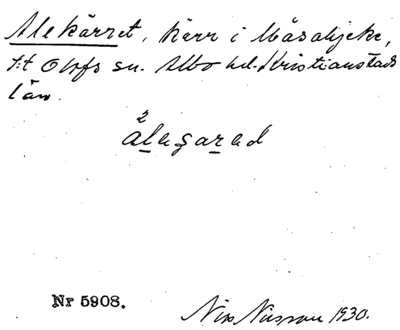 Alekärret, kärr i Måsalycke,
S:t Olofs sn. Albo hd. Kristianstads
län.
2
álagarad
Nr 5908.
Nils Nilsson 1930.